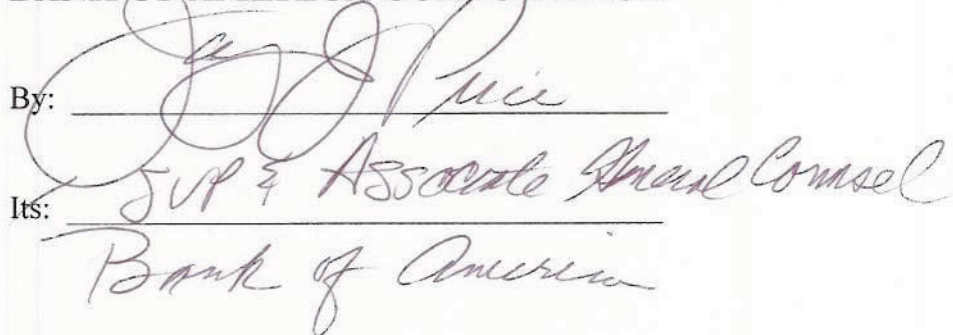 By: Jay J Price
Its: SVP & Associate General Counsel
Bank of America